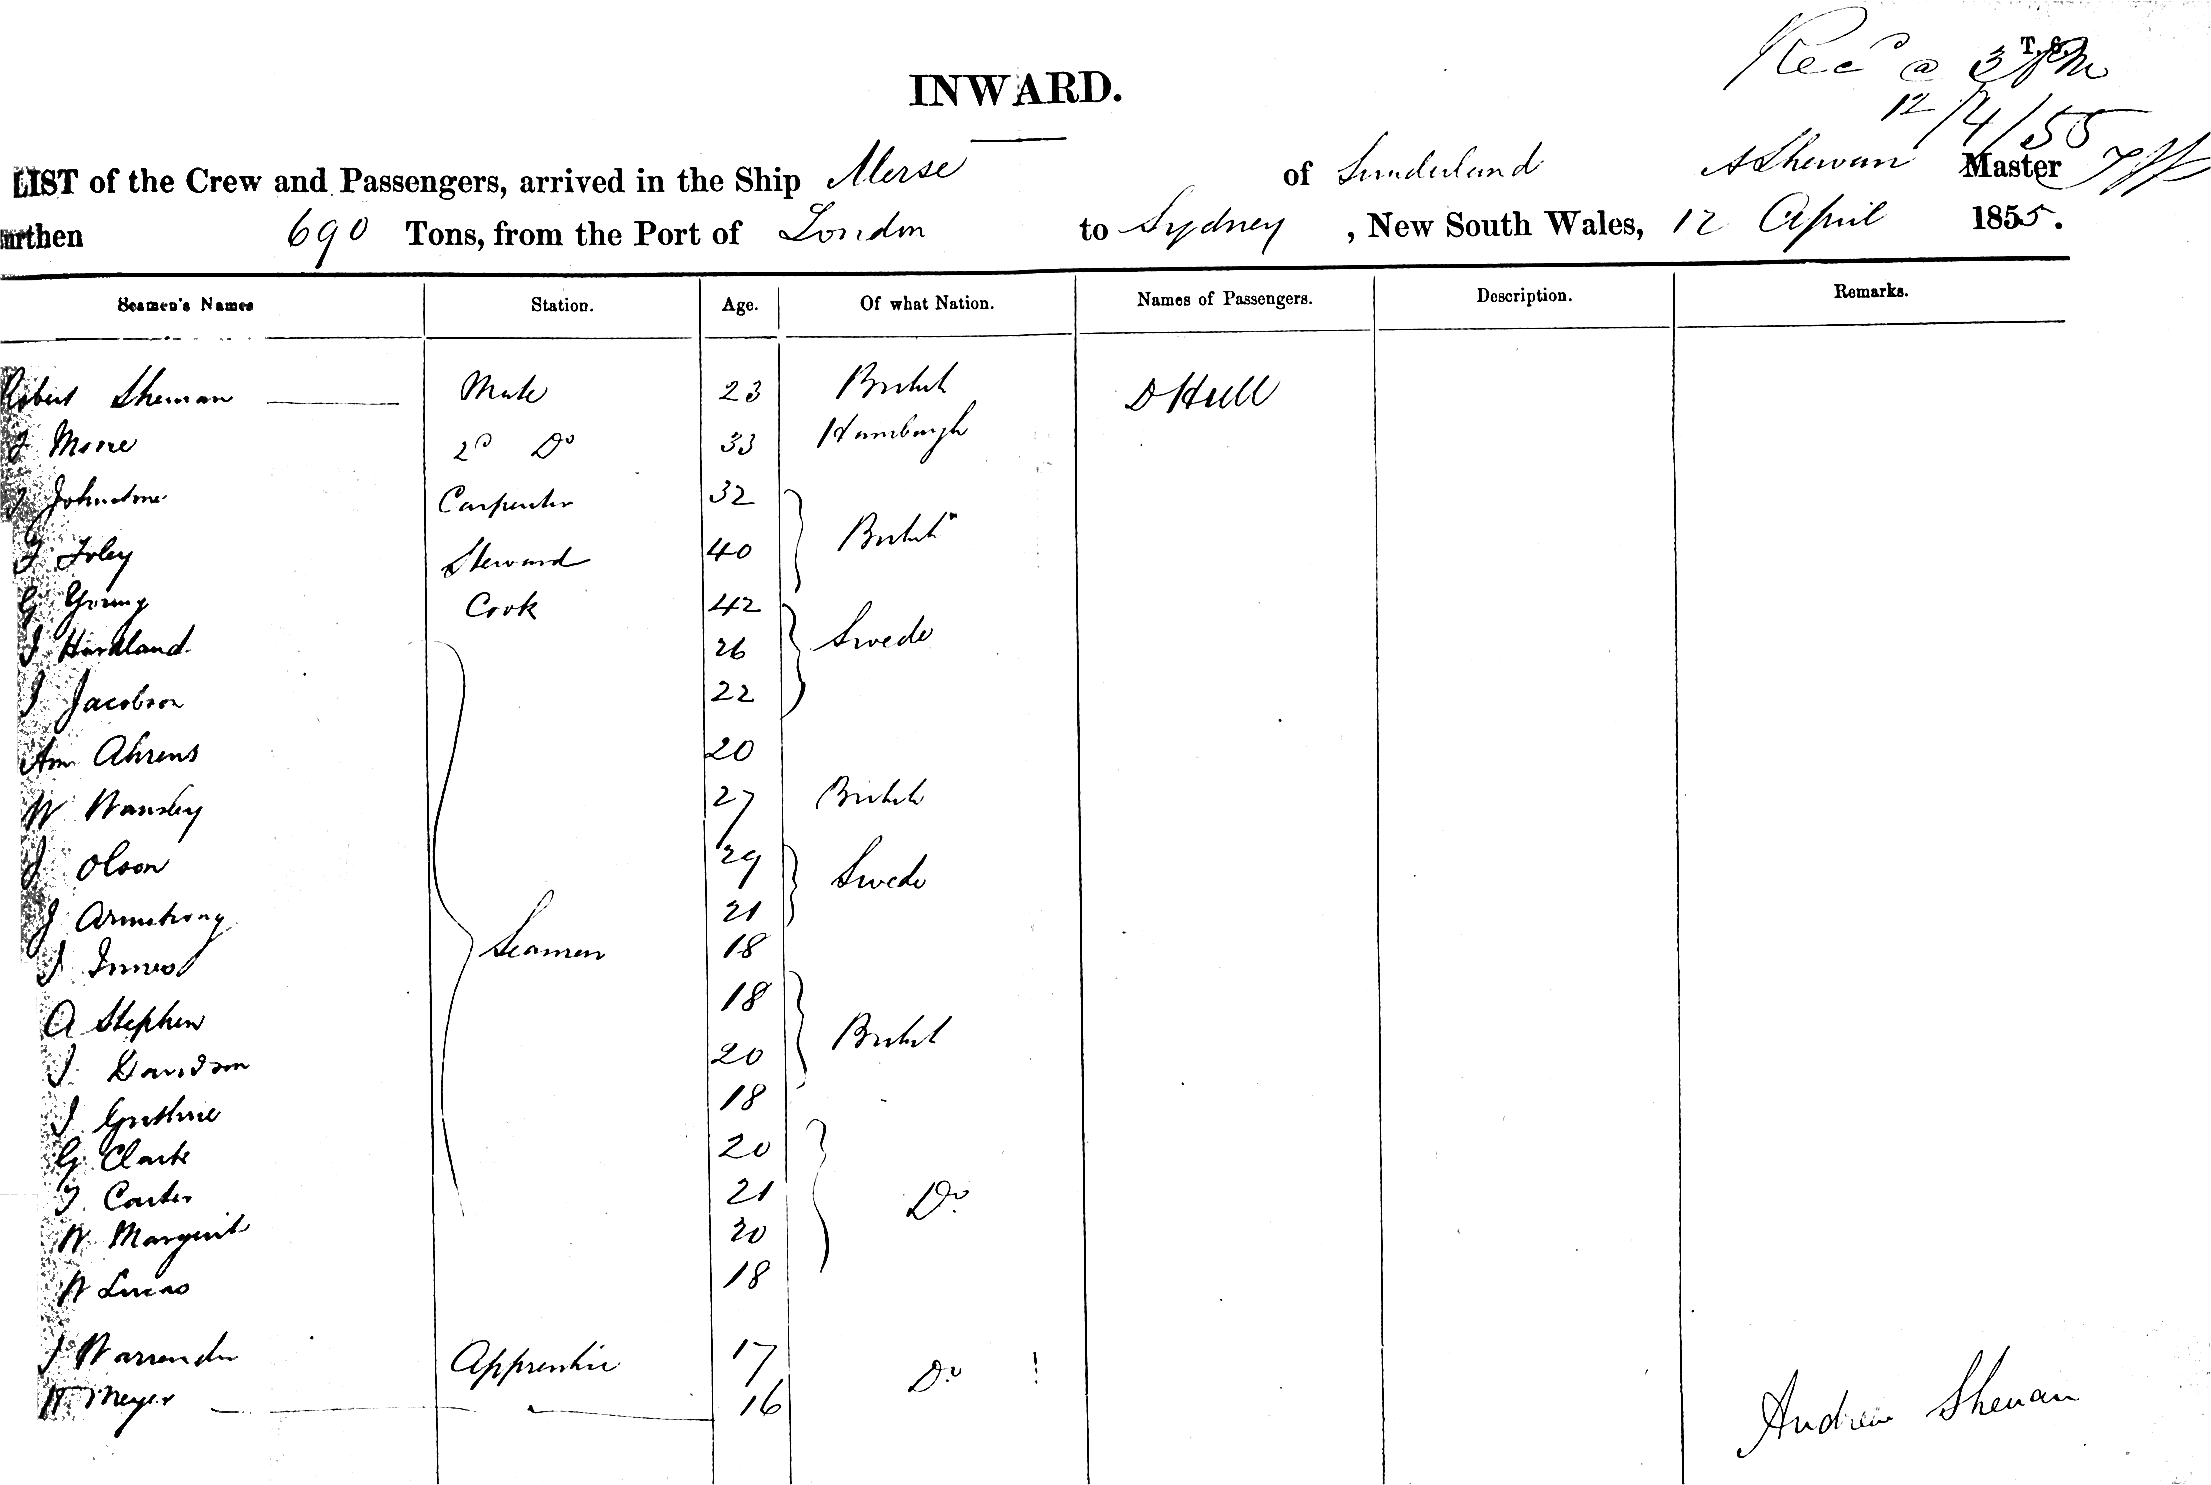 T. S.
Rec^d @ 3 PM
12/4/55
INWARD.
LIST of the Crew and Passengers, arrived in the Ship Merse of Sunderland A Shewan Master
urthen 690 Tons, from the Port of London to Sydney, New South Wales, 12 April 1855.
Seamen's Names Station. Age. Of what Nation. Names of Passengers. Description. Remarks.
Robert Shewan Mate 23 British D Hull
J Moore 2^d D^o 33 Hamburgh
J Johnstone Carpenter 32
British
J Foley Steward 40
G Young Cook 42
J Harkland 26 Swede
J Jacobson 22
Am Ahrens 20
W Wansley 27 British
J Olson 29 Swede
J Armstrong 21
J Innes Seamen 18
A Stephen 18
J Davidson 20 British
J Guthrie 18
G Clarke 20
T. Carter 21 D^o
W Margerit 20
W Lucas 18
J Warrender Apprentice 17 D^o
H Meyer 16
Andrew Shewan